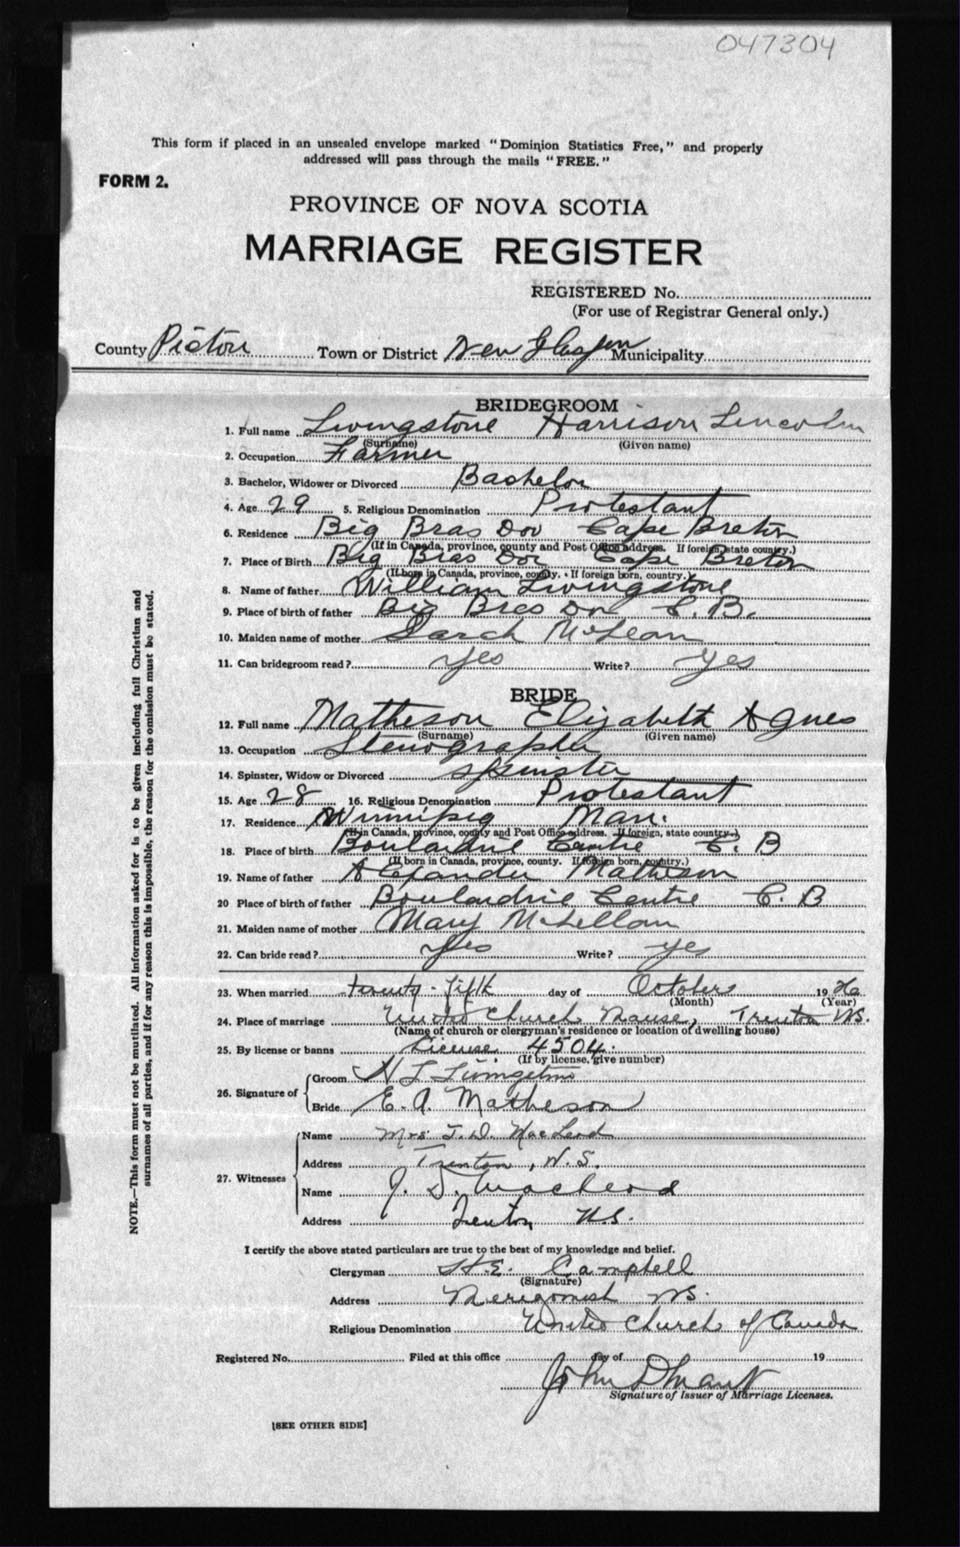 047304
This form if placed in an unsealed envelope marked "Dominion Statistics Free," and properly
addressed will pass through the mails "FREE."
FORM 2.
PROVINCE OF NOVA SCOTIA
MARRIAGE REGISTER
REGISTERED No.
(For use of Registrar General only.)
County Pictou Town or District New Glasgow Municipality
BRIDEGROOM
1. Full name Livingstone Harrison Lincoln
(Surname) (Given name)
2. Occupation Farmer
3. Bachelor, Widower or Divorced Bachelor
4. Age 29 5. Religious Denomination Protestant
6. Residence Big Bras Dor Cape Breton
(If in Canada, province, county and Post Office address. If foreign, state country.)
7. Place of Birth Big Bras Dor Cape Breton
(If born in Canada, province, county. If foreign born, country.)
8. Name of father William Livingstone
9. Place of birth of father Big Bras Dor C.B.
10. Maiden name of mother Sarah McLean
11. Can bridegroom read? yes Write? yes
BRIDE
12. Full name Matheson Elizabeth Agnes
(Surname) (Given name)
13. Occupation Stenographer
14. Spinster, Widow or Divorced spinster
15. Age 28 16. Religious Denomination Protestant
17. Residence Winnipeg Man.
(If in Canada, province, county and Post Office address. If foreign, state country.)
18. Place of birth Boulardrie Centre C. B
(If born in Canada, province, county. If foreign born, country.)
19. Name of father Alexander Matheson
20 Place of birth of father Boulardrie Centre C. B
21. Maiden name of mother Mary McLellan
22. Can bride read? yes Write? yes
23. When married twenty-fifth day of October 1926
(Month) (Year)
24. Place of marriage United Church Manse, Trenton N.S.
(Name of church or clergyman's residence or location of dwelling house)
25. By license or banns License 4504.
(If by license, give number)
26. Signature of Groom H L Livingstone
Bride E. A. Matheson
27. Witnesses Name Mrs. J. D. MacLeod
Address Trenton, N.S.
Name J. D. MacLeod
Address Trenton N.S.
I certify the above stated particulars are true to the best of my knowledge and belief.
Clergyman Campbell
(Signature)
Address Merigomish NS.
Religious Denomination United Church of Canada
Registered No. Filed at this office day of 19
John D Grant
Signature of Issuer of Marriage Licenses.
[SEE OTHER SIDE]
NOTE.—This form must not be mutilated. All information asked for is to be given including full Christian and
surnames of all parties, and if for any reason this is impossible, the reason for the omission must be stated.